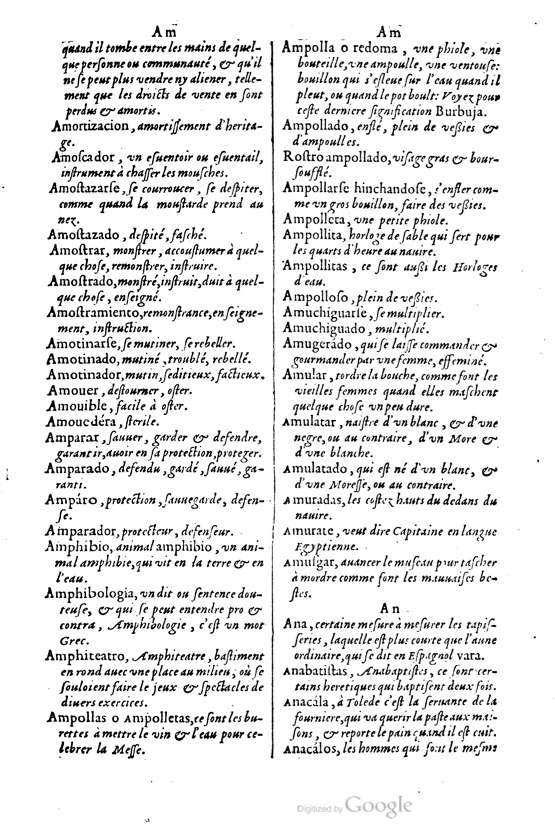 Am
quand il tombe entre les mains de quel-
que personne ou communauté, & qu'il
ne se peut plus vendre ny aliener, telle-
ment que les droicts de vente en sont
perdus & amortis.
Amortizacion, amortissement d'herita-
ge.
Amoscador, vn esuentoir ou esuentail,
instrument à chasser les mousches.
Amostazarse, se courroucer, se despiter,
comme quand la moustarde prend au
nez.
Amostazado, despité, fasché.
Amostrar, monstrer, accoustumer à quel-
que chose, remonstrer, instruire.
Amostrado, monstré, instruit, duit à quel-
que chose, enseigné.
Amostramiento, remonstrance, enseigne-
ment, instruction.
Amotinarse, se mutiner, se rebeller.
Amotinado, mutiné, troublé, rebellé.
Amotinador, mutin, seditieux, factieux.
Amouer, destourner, oster.
Amouible, facile à oster.
Amouedéra, sterile.
Amparar, sauuer, garder & defendre,
garantir, auoir en sa protection, proteger.
Amparado, defendu, gardé, sauué, ga-
ranti.
Ampáro, protection, sauuegarde, defen-
se.
Amparador, protecteur, defenseur.
Amphibio, animal amphibio, vn ani-
mal amphibie, qui vit en la terre & en
l'eau.
Amphibologia, vn dit ou sentence dou-
teuse, & qui se peut entendre pro &
contra, Amphibologie, c'est vn mot
Grec.
Amphiteatro, Amphiteatre, bastiment
en rond auec vne place au milieu, où se
souloient faire le jeux & spectacles de
diuers exercices.
Ampollas o Ampolletas, ce sont les bu-
rettes à mettre le vin & l'eau pour ce-
lebrer la Messe.
Am
Ampolla o redoma, vne phiole, vne
bouteille, vne ampoulle, vne ventouse:
bouillon qui s'esleue sur l'eau quand il
pleut, ou quand le pot boult: Voyez pour
ceste derniere signification Burbuja.
Ampollado, enflé, plein de vessies &
d'ampoulles.
Rostro ampollado, visage gras & bour-
soufflé.
Ampollarse hinchandose, s'enfler com-
me vn gros bouillon, faire des vessies.
Ampolleta, vne petite phiole.
Ampollita, horloge de sable qui sert pour
les quarts d'heure au nauire.
Ampollitas, ce sont aussi les Horloges
d'eau.
Ampolloso, plein de vessies.
Amuchiguarse, se multiplier.
Amuchiguado, multiplié.
Amugerado, qui se laisse commander &
gourmander par vne femme, effeminé.
Amular, tordre la bouche, comme font les
vieilles femmes quand elles maschent
quelque chose vn peu dure.
Amulatar, naistre d'vn blanc, & d'vne
negre, ou au contraire, d'vn More &
d'vne blanche.
Amulatado, qui est né d'vn blanc, &
d'vne Moresse, ou au contraire.
Amuradas, les costez hauts du dedans du
nauire.
Amurate, veut dire Capitaine en langue
Egyptienne.
Amulgar, auancer le museau pour tascher
à mordre comme font les mauuaises be-
stes.
An
Ana, certaine mesure à mesurer les tapis-
series, laquelle est plus courte que l'aune
ordinaire, qui se dit en Espagnol vara.
Anabatistas, Anabaptistes, ce sont cer-
tains heretiques qui baptisent deux fois.
Anacála, à Tolede c'est la seruante de la
fourniere, qui va querir la paste aux mai-
sons, & reporte le pain quand il est cuit.
Anacálos, les hommes qui font le mesme
Digitized by Google